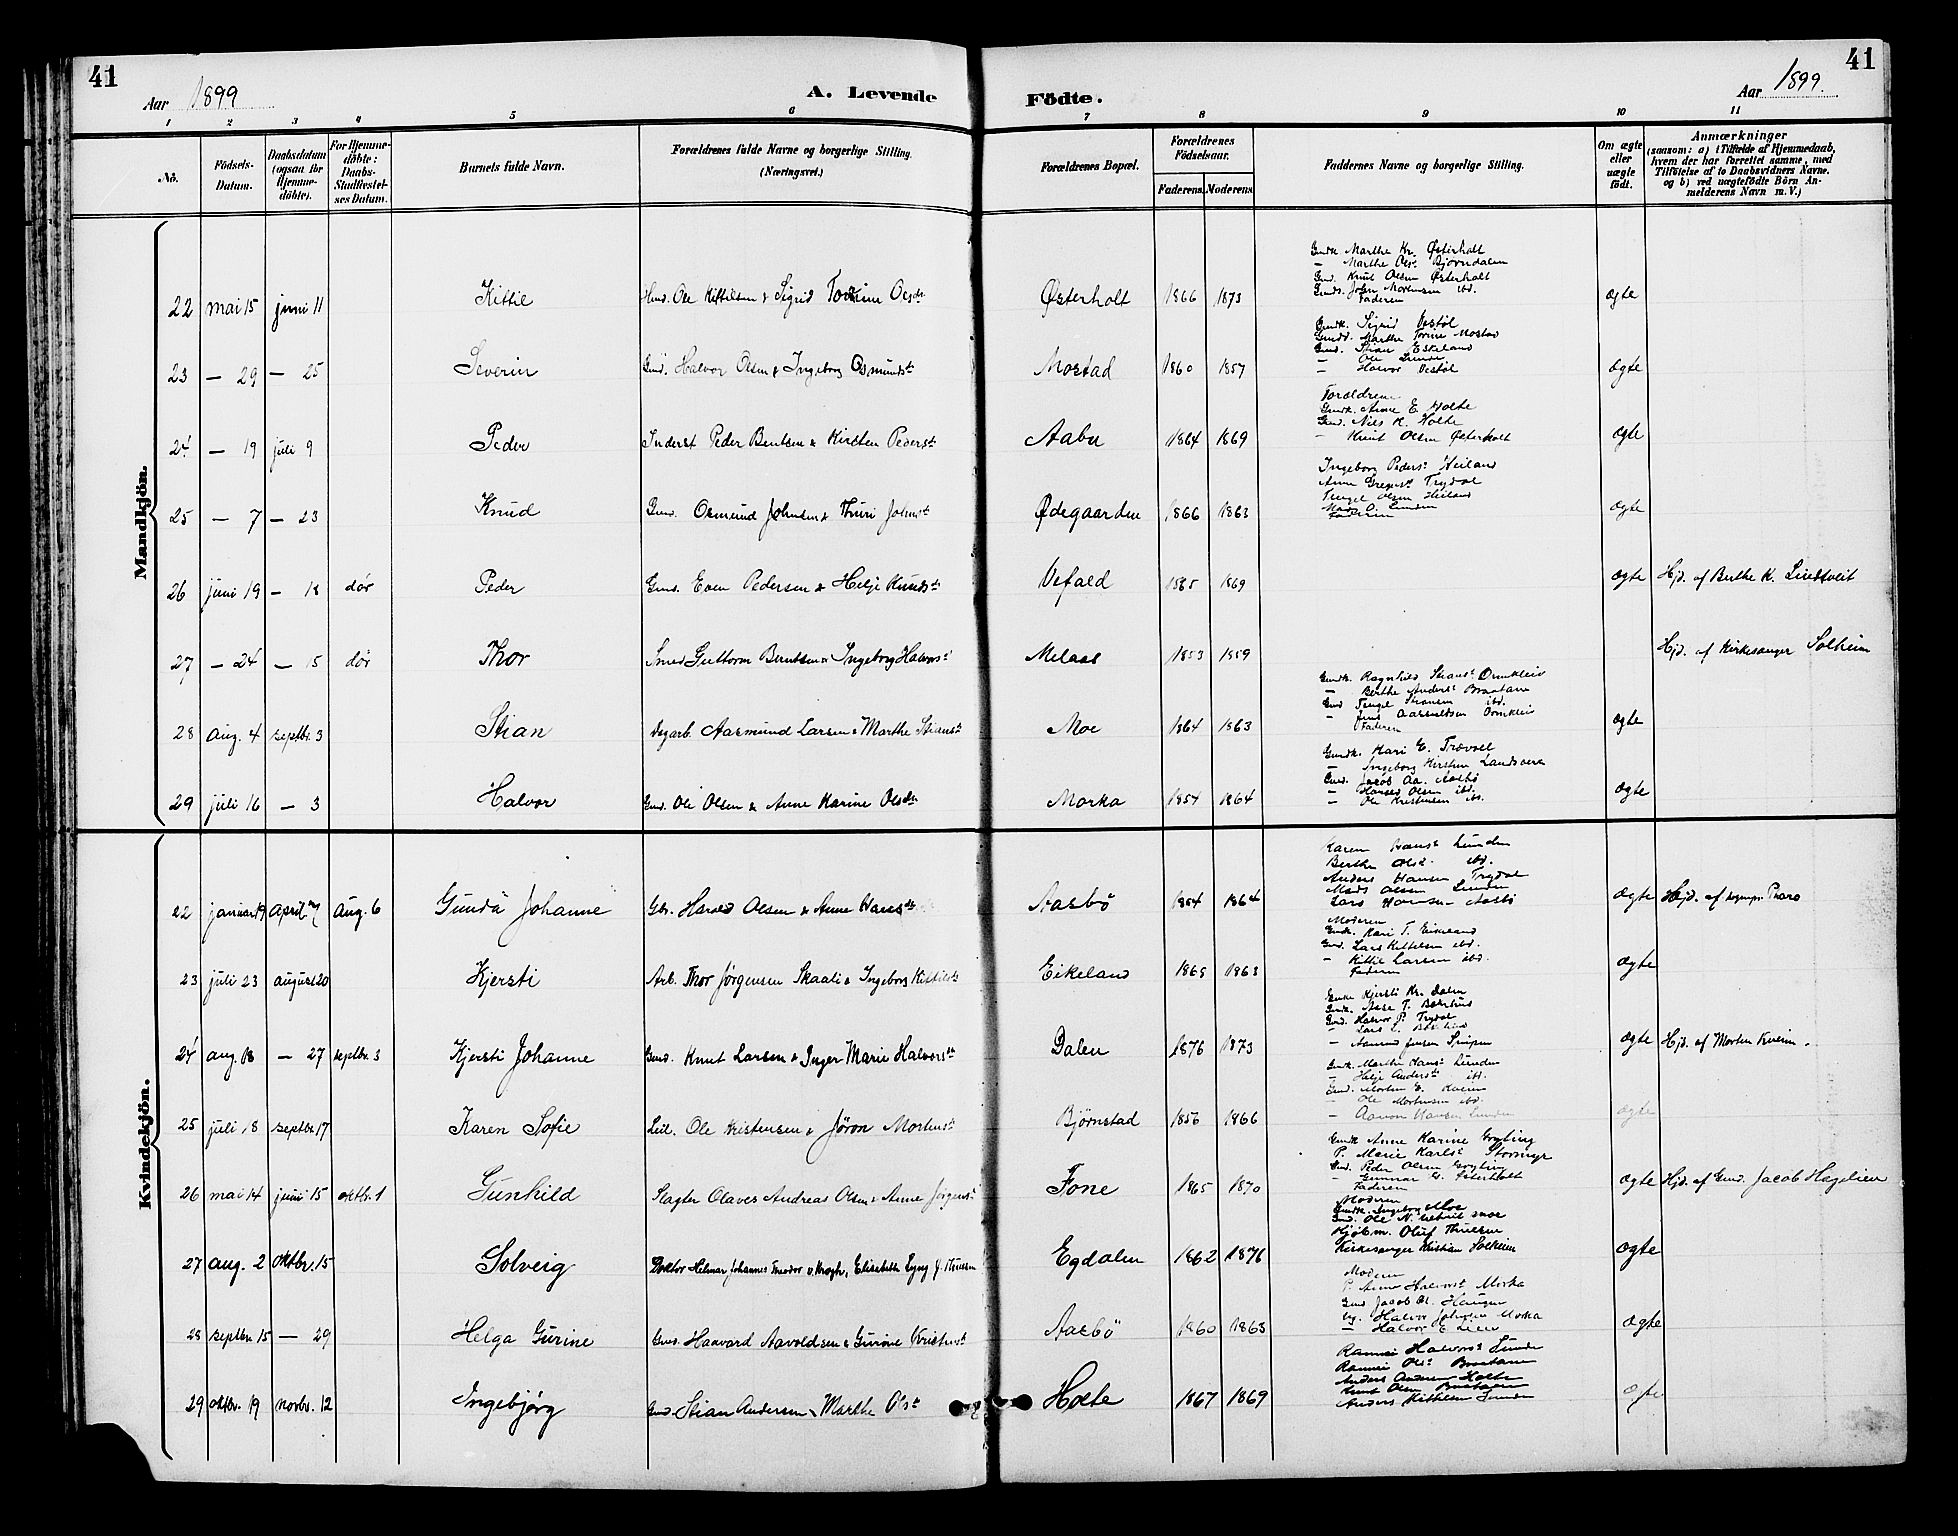 41
Aar 1899
A. Levende
Födte.
Aar 1899.
41
1 2 3 4 5 6 7 8 9 10 11
No.
Födsels-Datum.
Daabsdatum (ogsaa for Hjemme-döbte).
For Hjemme-döbte: Daabs-Stadfæstel-ses Datum.
Barnets fulde Navn.
Forældrenes fulde Navne og borgerlige Stilling. (Næringsvei.)
Forældrenes Bopæl.
Forældrenes Födselsaar.
Faderens. Moderens.
Faddernes Navne og borgerlige Stilling.
Om ægte eller uægte födt.
Anmærkninger
(saasom: a) i Tilfælde af Hjemmedaab, hvem der har forrettet samme, med Tilföielse af to Daabsvidners Navne. og b) ved uægtefödte Börn An-melderens Navn m. V.)
Mandkjön.
22 mai 15 juni 11 Kittil Gmd. Ole Kittilsen & Sigrid Torine Olsdr Østerholt 1866 1873 ægte
Gmdk. Marthe Kr. Østerholt
— Marthe Olsd. Bjorndalen
Gmd. Knut Olsen Østerholt
Gmds. John Mortensen ibd.
Faderen
23 — 29 — 25 Severin Gmd. Halvor Olsen & Ingeborg Osmundsd. Mostad 1860 1857 ægte
Gmdk. Sigrid Vestøl
Gmdd. Marthe Torine Mostad
Gmd. Stian Eskeland
— Ole Lunde
— Halvor Vestøl
24 — 19 juli 9 Peder Inderst Peder Bentsen & Kirsten Pedersd. Aabu 1864 1869 ægte
Forældrene
Gmdk. Anne E. Holte
Gmd. Nils K. Holte
— Knut Olsen Østerholt
25 — 7 — 23 Knud Gmd. Osmund Johnsen & Thuri Johnsd. Ødegaarden 1866 1863 ægte
Ingeborg Pedersd. Heiland
Anne Gregersd. Trydal
Tengel Olsen Heiland
Mads O. Lunden
Faderen
26 juni 19 — 18 dør Peder Gmd. Even Pedersen & Helje Knudsd. Vefald 1865 1869 ægte Hjd. af Berthe K. Lindtveit
27 — 24 — 15 dør Thor Smed Guttorm Berntsen & Ingeborg Halvorsd. Melaas 1853 1859 Hjd. af Kirkesanger Solheim
28 aug. 4 septbr. 3 Stian Dagarb. Aasmund Larsen & Marthe Stiansd. Moe 1864 1863 ægte
Gmdk. Ragnhild Stiansd.
— Berthe Andersd. Braatane
Gmd Tengel Stiansen ibd.
— Jens
Faderen
29 juli 16 — 3 Halvor Gmd. Ole Olsen & Anne Karine Olsdr Morka 1854 1864 ægte
Gmdk. Kari E. Trævoll
— Ingeborg Kirstine Landsverk
Gmd. Jacob Aa. Aasbø
— Hans Olsen ibd.
— Ole Kristensen ibd.
Kvindekjön.
22 januar 19 april 7 aug. 6 Gunda Johanne Gbr. Harald Olsen & Anne Hansdr Aasbø 1854 1864 ægte Hjd. af sogenpr. Tharo
Karen Hansd. Lunden
Berthe Olsd. ibd.
Anders Hansen Trydal
Mads Olsen Lunden
Lars Hansen Aasbø
23 juli 23 august 20 Kjersti Arb. Thor Jørgensen Skaali & Ingeborg Kittilsd. Eikeland 1865 1863 ægte
Moderen
Gmdk. Kari T. Eikeland
Gmd. Lars Kittilsen ibd.
— Kittil Larsen ibd.
Faderen
24 aug. 18 — 27 septbr. 3 Kjersti Johanne Gmd. Knut Larsen & Inger Marie Halvorsdr Dalen 1876 1873 ægte Hjd. af Morten Kveim.
Enke Kjersti Kr. Dalen
Gmd. Halvor P. Trydal
25 juli 18 septbr 17 Karen Sofie Leil. Ole Kristensen & Jøron Mortensd. Bjørnstad 1856 1866 ægte
Gmdk. Marthe Hansd. Lunden
— Helje Andersd. ibd.
Gmd. Morten E. Kveim
— Ole Mortensen ibd.
— Aanon Hansen Lunden
26 mai 14 juni 15 oktbr. 1 Gunhild Slagter Olaves Andreas Olsen & Anne Jørgensd. Fone 1865 1870 ægte Hjd. af Gmd. Jacob Hagelien
Gmdk Anne Karine Gryting
P. Marie Karlsd. Stormyr
Gmd. Peder Olsen Gryting
— Gunnar G. Østerholt
Faderen
27 aug. 2 oktbr. 15 Solveig Doktor Helmar Johannes Theodor v. Krogh, Elisabeth Lyng J. Knudsen Egdalen 1862 1876 ægte
Moderen
Gmdk. Ingeborg Moe
Gmd. Ole N.
Kjøbm. Oluf Thuesen
Kirkesanger Kristian Solheim
28 septbr 15 — 29 Helga Gurine Gmd. Haavard Aavoldsen & Gurine Kristensd. Aasbø 1860 1863 ægte
Moderen
P. Anne Halvorsd. Morka
Gmd Jacob H. Haugen
Ug. Halvor Johnsen Morka
— Halvor E. Lien
29 oktbr. 19 novbr. 12 Ingebjørg Gmd. Stian Andersen & Marthe Olsd. Holte 1867 1869 ægte
Rannei Halvorsd. Lunde
Rannei Olsd. Braatane
Anders Andersen Holte
Knut Olsen Braataane
Anders Kittilsen Lunden